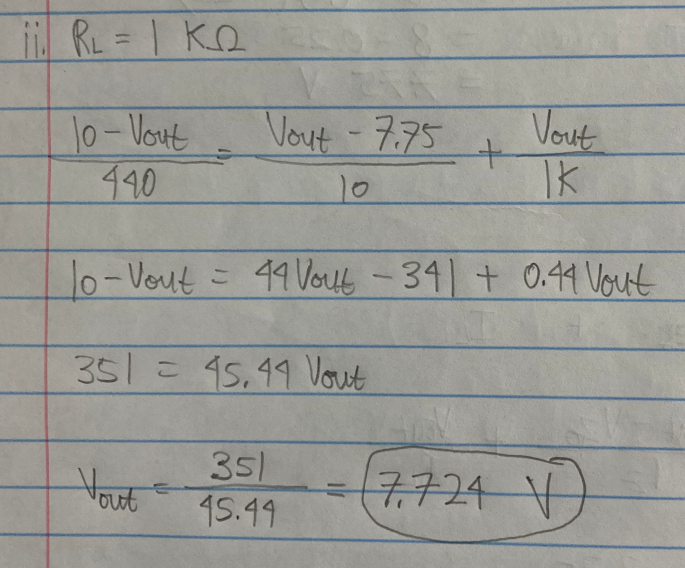 ii. RL = 1 KΩ
10 - Vout / 440 = Vout - 7.75 / 10 + Vout / 1K
10 - Vout = 44Vout - 341 + 0.44 Vout
351 = 45.44 Vout
Vout = 351 / 45.44 = 7.724 V